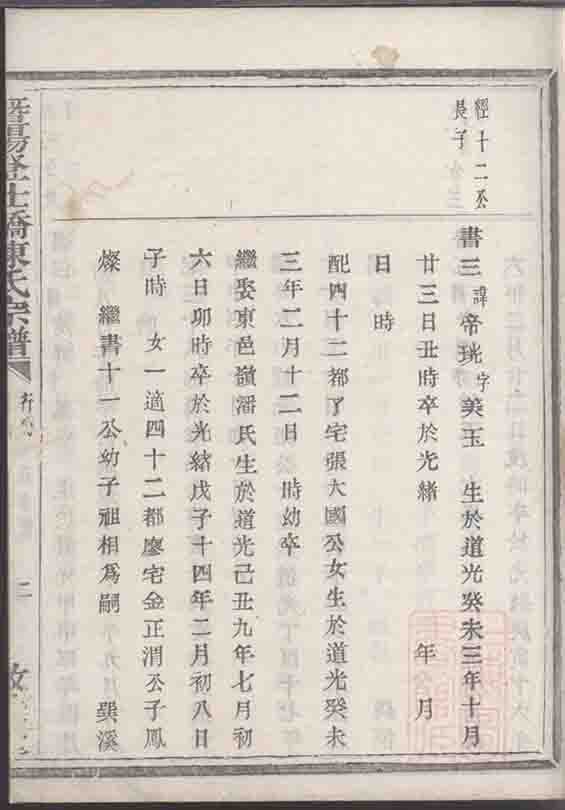 經十二公
長子
書三諱帝珖字美玉 生於道光癸未三年十月
廿三日丑時卒於光緒 年 月
日 時
配四十二都了宅張大國公女生於道光癸未
三年二月十二日 時幼卒
繼娶東邑嶺潘氏生於道光己丑九年七月初
六日卯時卒於光緒戊子十四年二月初八日
子時 女一適四十二都廖宅金正渭公子鳳
燦 繼書十一公幼子祖相爲嗣 巽溪
暨陽 士橋陳氏宗譜